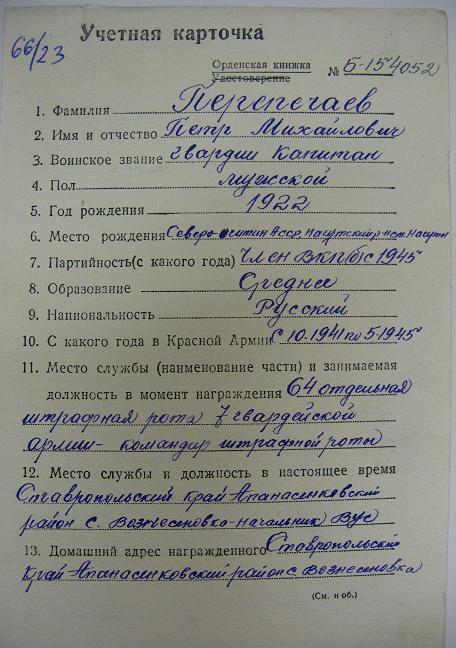 66/23
Учетная карточка
Орденская книжка
Удостоверение № Б-154052
1. Фамилия Перепечаев
2. Имя и отчество Петр Михайлович
3. Воинское звание гвардии Капитан
4. Пол мужской
5. Год рождения 1922
6. Место рождения
7. Партийность(с какого года) Член ВКП(б) с 1945
8. Образование Среднее
9. Национальность Русский
10. С какого года в Красной Армии С 10.1941 по 5.1945
11. Место службы (наименование части) и занимаемая
должность в момент награждения 64 отдельная
штрафная рота 7 гвардейской
армии - командир штрафной роты
12. Место службы и должность в настоящее время
Ставропольский край Апанасенковский
район с. Вознесеновка - начальник ВУС
13. Домашний адрес награжденного Ставропольский
край Апанасенковский район с Вознесеновка
(См. н об.)